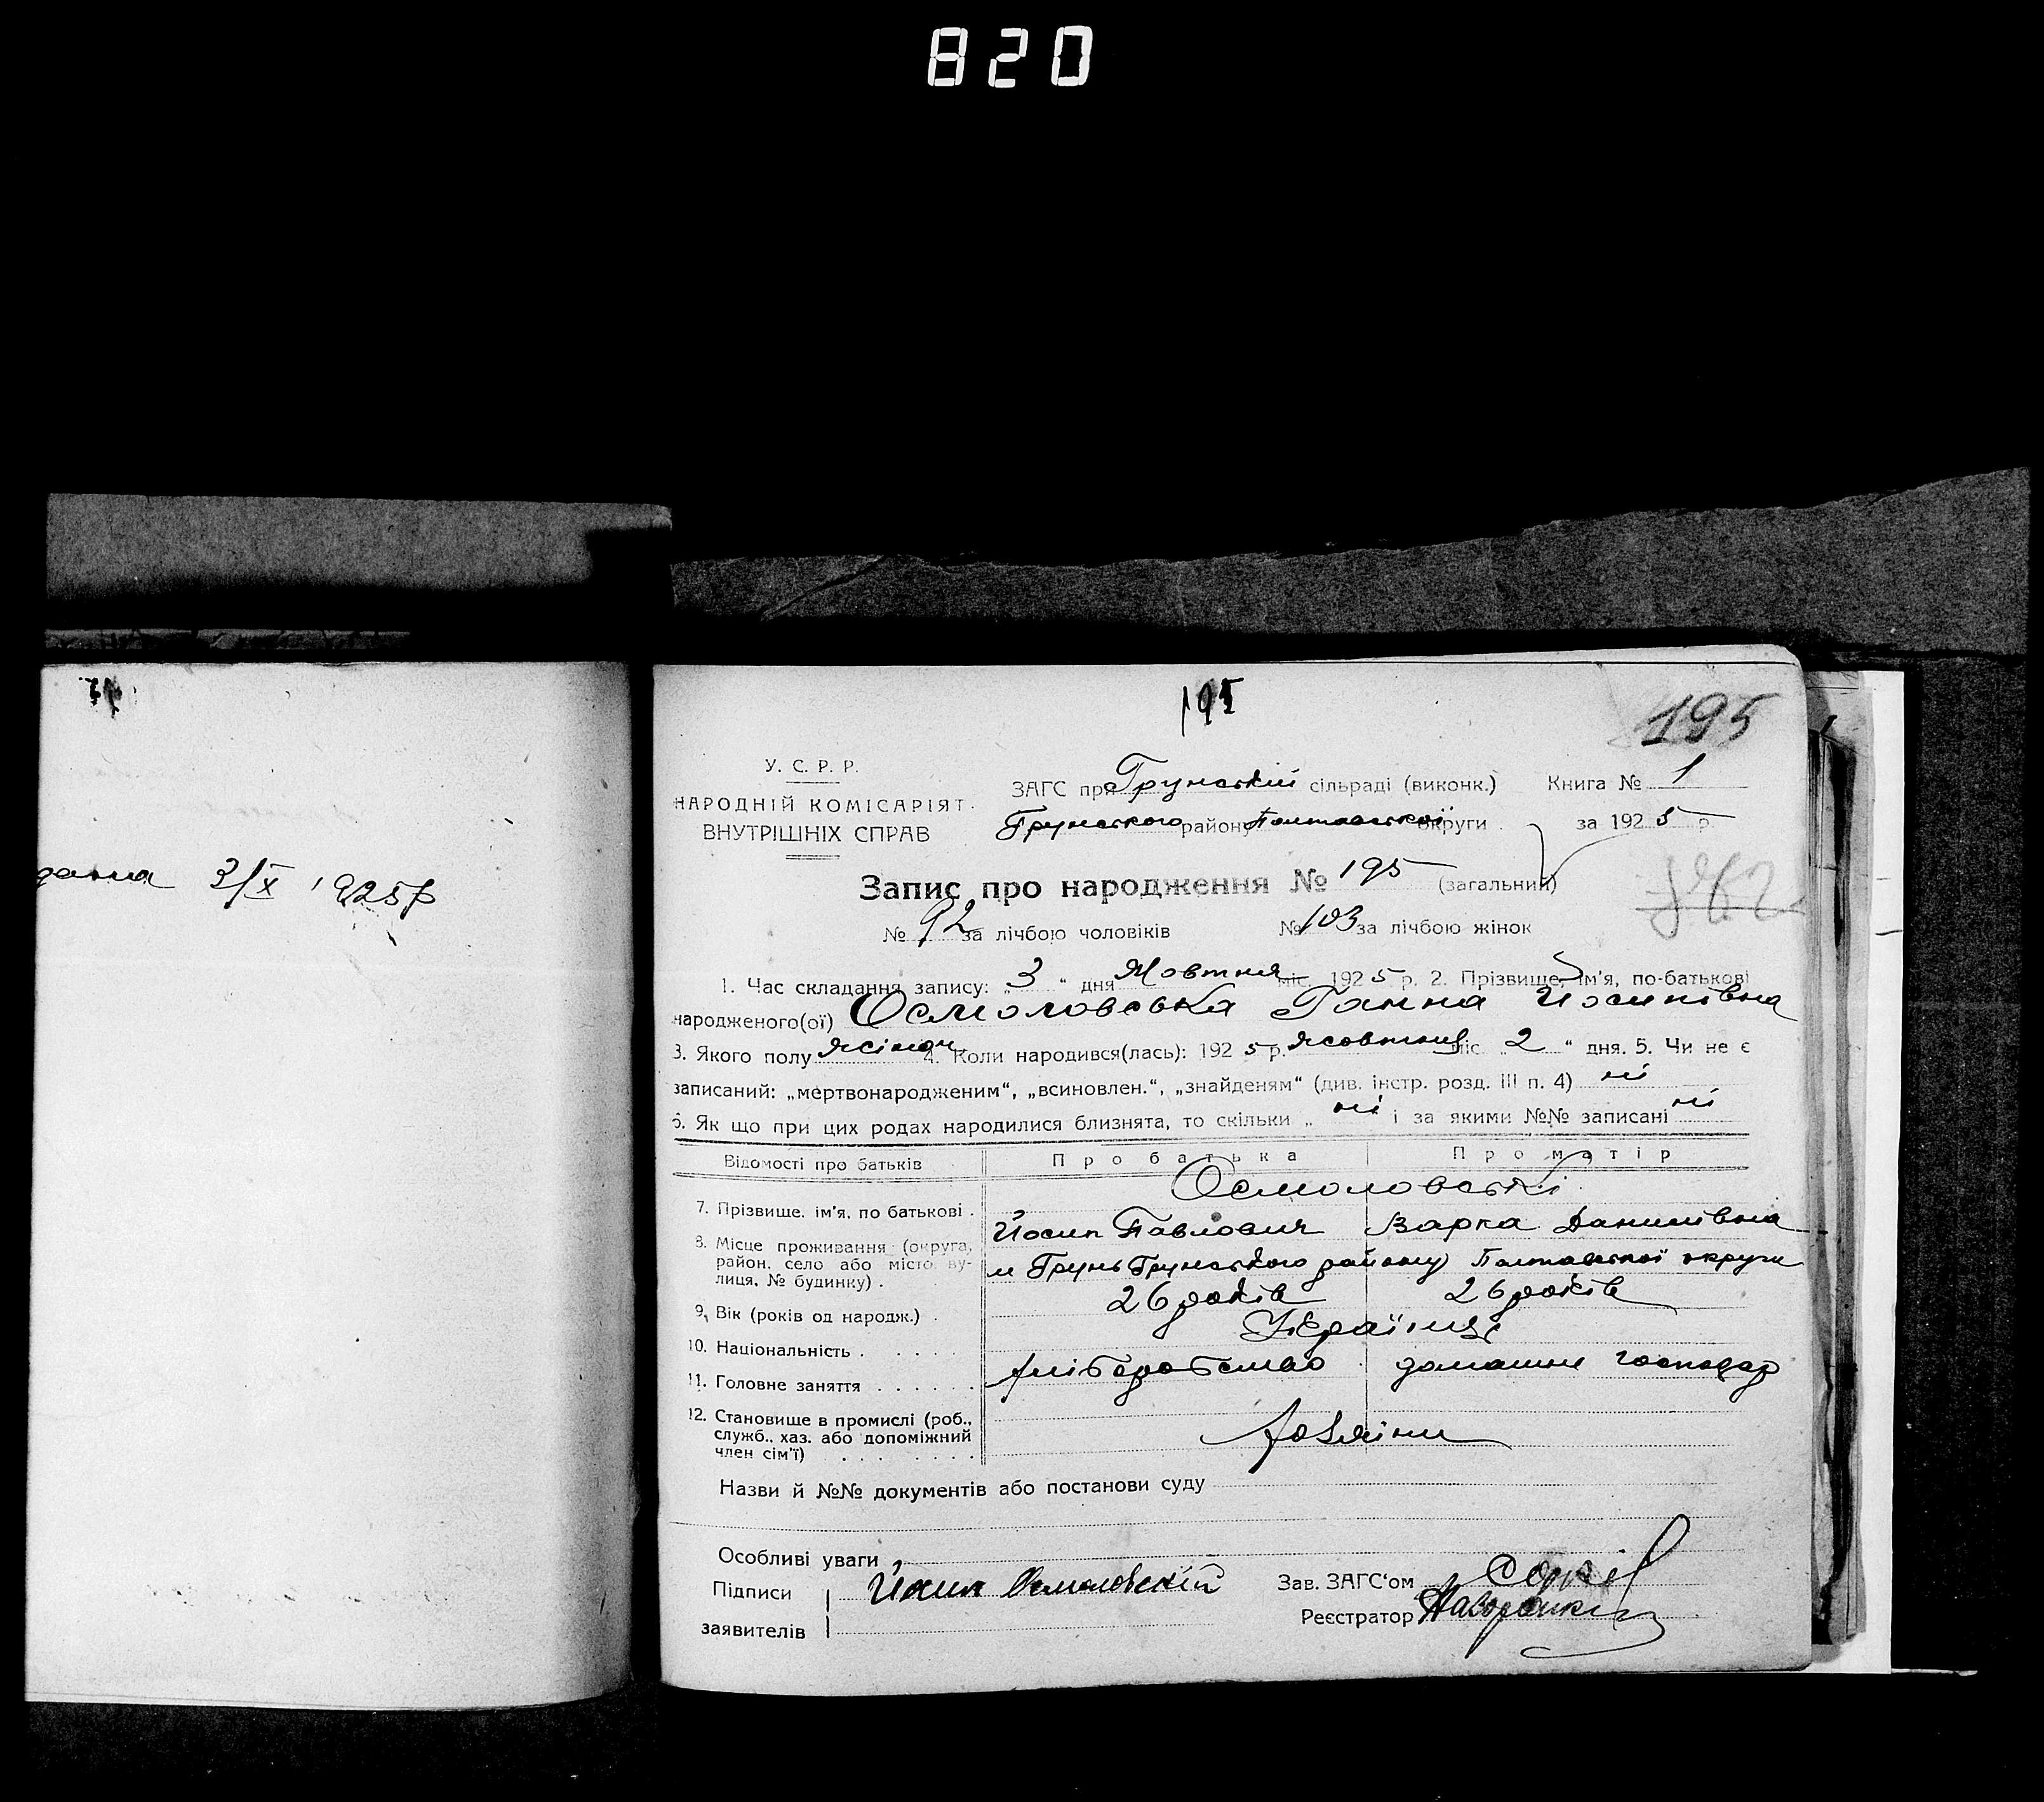 820
дання 3/X 1925 р
195
195
У. С. Р. Р.
НАРОДНІЙ КОМІСАРІЯТ
ВНУТРІШНІХ СПРАВ
ЗАГС при Грунській сільраді (виконк.) Книга № 1
Грунського району Полтавської округи за 1925 р.
Запис про народження № 195 (загальний)
№ 92 за лічбою чоловіків № 103 за лічбою жінок
1. Час складання запису: „ 3 “ дня Жовтня міс. 1925 р. 2. Прізвище, ім'я, по-батькові
народженого(ої) Осмоловська Ганна Йосипівна
3. Якого полу жіноч 4. Коли народився(лась): 1925 р. жовтня міс. „ 2 “ дня. 5. Чи не є
записаний: „мертвонародженим“, „всиновлен.“, „знайденям“ (див. інстр. розд. III п. 4) ні
6. Як що при цих родах народилися близнята, то скільки „ ні і за якими №№ записані ні
Відомості про батьків Про батька Про матір
Осмоловські
7. Прізвище. ім'я, по батькові . Йосип Павлович Варка Данилівна
8. Місце проживання (округа, район, село або місто, ву-
лиця, № будинку) . м Грунь Грунського району Полтавської округи
9. Вік (років од народж.) . 26 років 26 років
10. Національність . . . . . Українці
11. Головне заняття . . . . . . хліборобство домашнє господар
12. Становище в промислі (роб.,
служб., хаз. або допоміжний
член сім'ї) . . . . . . . Хазяїни
Назви й №№ документів або постанови суду
Особливі уваги
Підписи Йосип Осмоловский Зав. ЗАГС'ом
заявителів Реєстратор